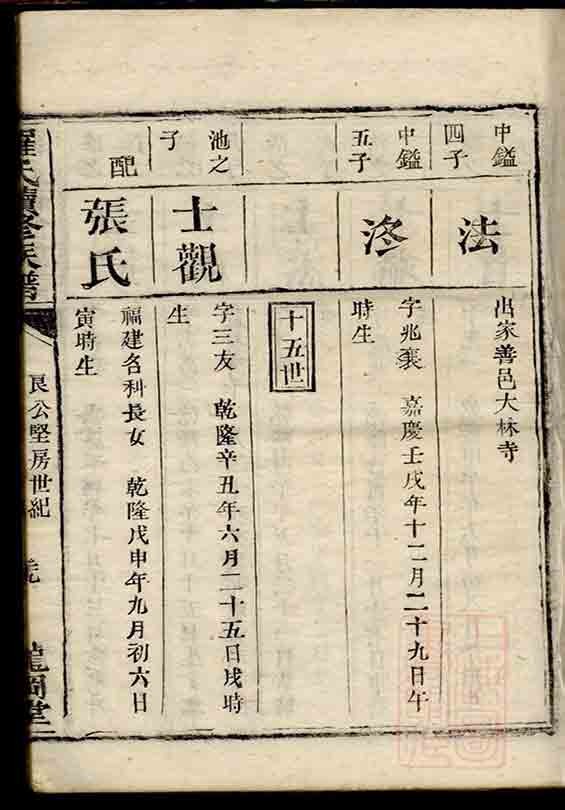 中鑑
四子
法
出家善邑大林寺
中鑑
五子
洛
字兆襄 嘉慶壬戌年十二月二十九日午
時生
十五世
池之
子
士觀
字三友 乾隆辛丑年六月二十五日戌時
生
配
張氏
福建名科長女 乾隆戊申年九月初六日
寅時生
羅氏續修族譜
良公堅房世紀
龍岡堂